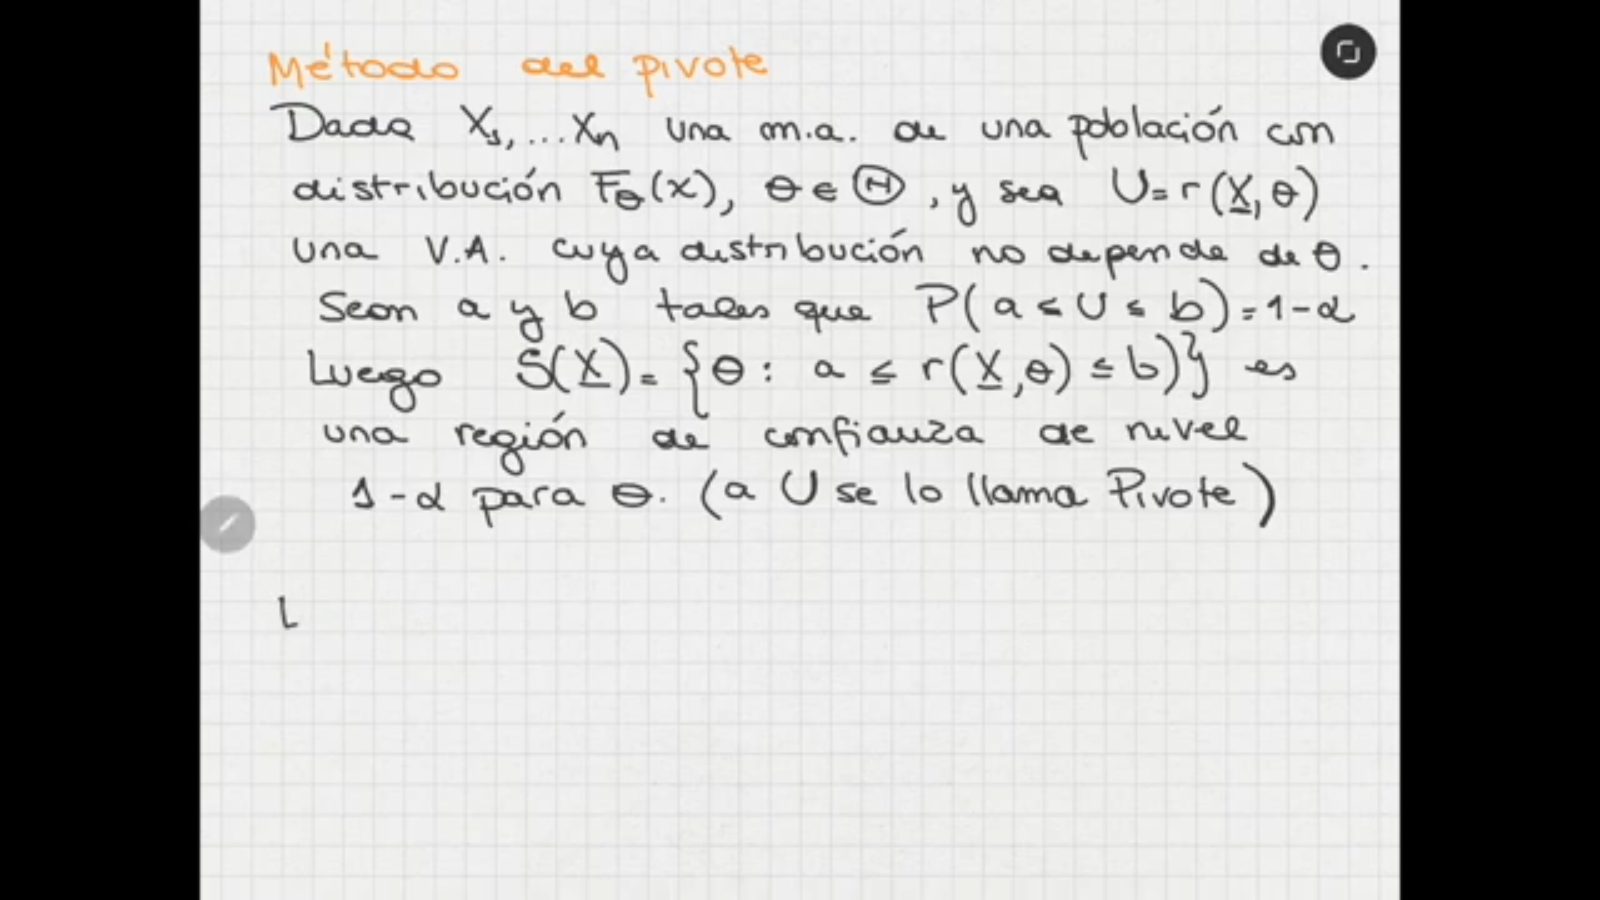 Método del pivote
Dada X₁, ... Xn una m.a. de una población con
distribución Fθ(x), θ ∈ Θ, y sea U = r(X, θ)
una V.A. cuya distribución no depende de θ.
Sean a y b tales que P(a ≤ U ≤ b) = 1-α
Luego S(X) = {θ: a ≤ r(X, θ) ≤ b)} es
una región de confianza de nivel
1-α para θ. (a U se lo llama Pivote)
L